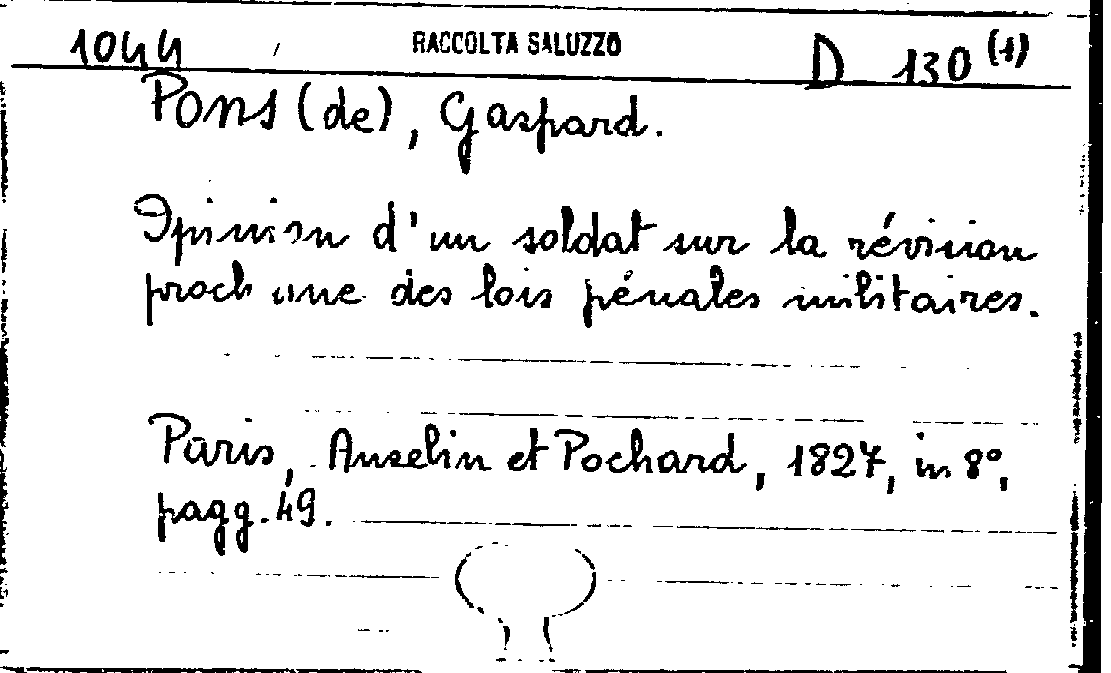 1044 RACCOLTA SALUZZO D 130 (1)
Pons (de), Gaspard.
Opinion d'un soldat sur la révision
prochaine des lois pénales militaires.
Paris, Anselin et Pochard, 1827, in 8°,
pagg. 49.